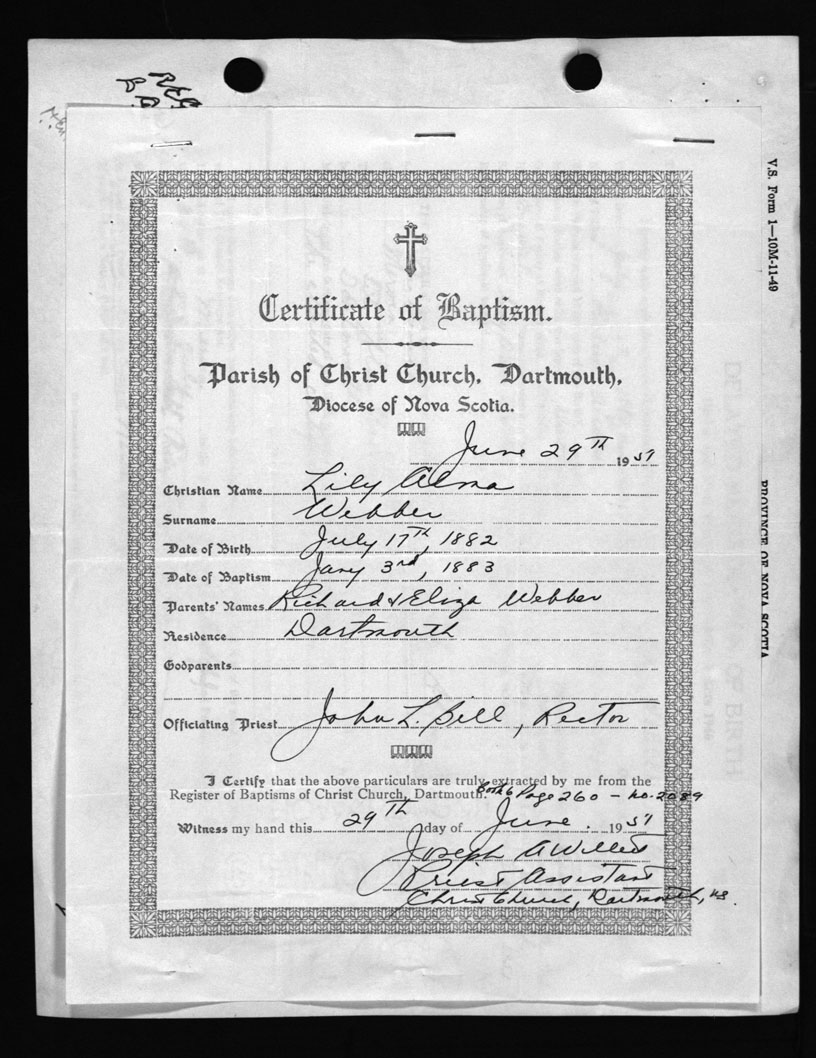 REG.
V.S. Form 1—10M-11-49
PROVINCE OF NOVA SCOTIA
Certificate of Baptism.
Parish of Christ Church, Dartmouth,
Diocese of Nova Scotia.
June 29TH 1957
Christian Name Lily Alma
Surname Webber
Date of Birth July 17TH, 1882
Date of Baptism Jany 3rd, 1883
Parents' Names Richard & Eliza Webber
Residence Dartmouth
Godparents
Officiating Priest John L. Bell, Rector
I Certify that the above particulars are truly extracted by me from the
Register of Baptisms of Christ Church, Dartmouth. Book 6 Page 260 - No. 2089
Witness my hand this 29TH day of June. 1957
Joseph A Willets
Priest Assistant
Christ Church, Dartmouth, NS.
OF BIRTH